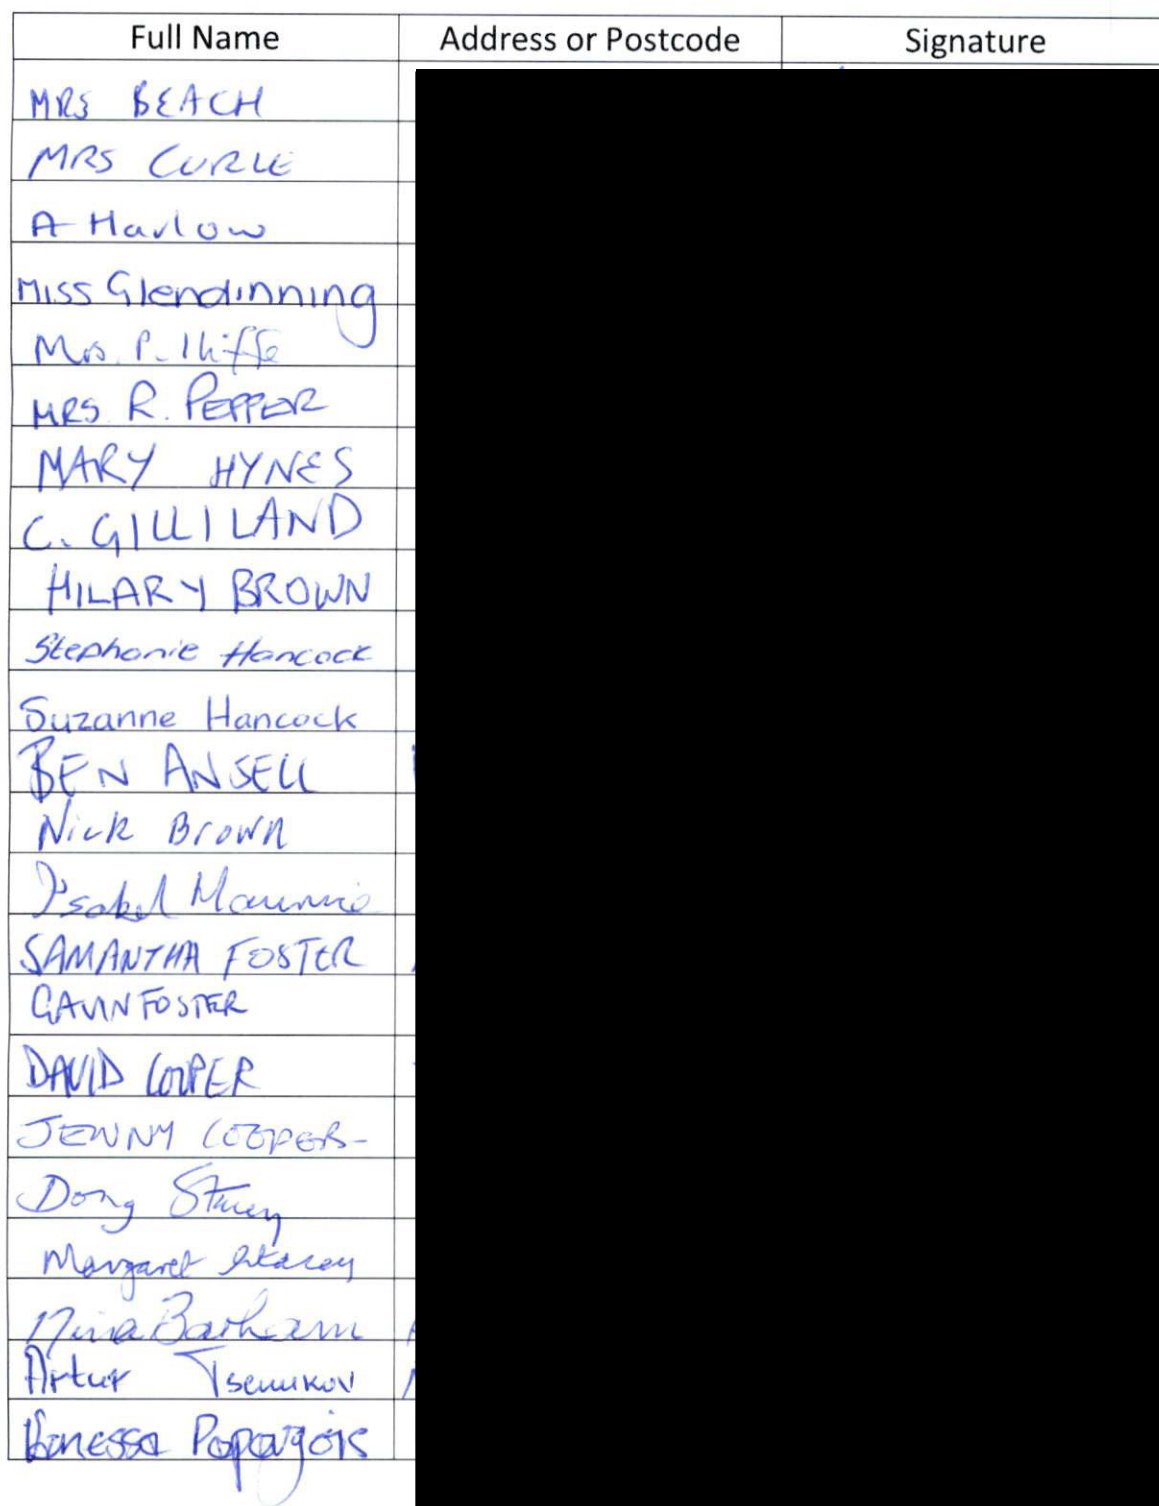 Full Name Address or Postcode Signature
MRS BEACH
MRS CURLE
A Harlow
Miss Glendinning
Mrs. P. Iliffe
MRS R. PEPPER
MARY HYNES
C. GILLILAND
HILARY BROWN
Stephanie Hancock
Suzanne Hancock
BEN ANSELL
Nick Brown
Isabel
SAMANTHA FOSTER
GAVIN FOSTER
DAVID COOPER
JENNY COOPER
Doug Stacey
Margaret Stacey
Nina Barham
Artur
Vanessa